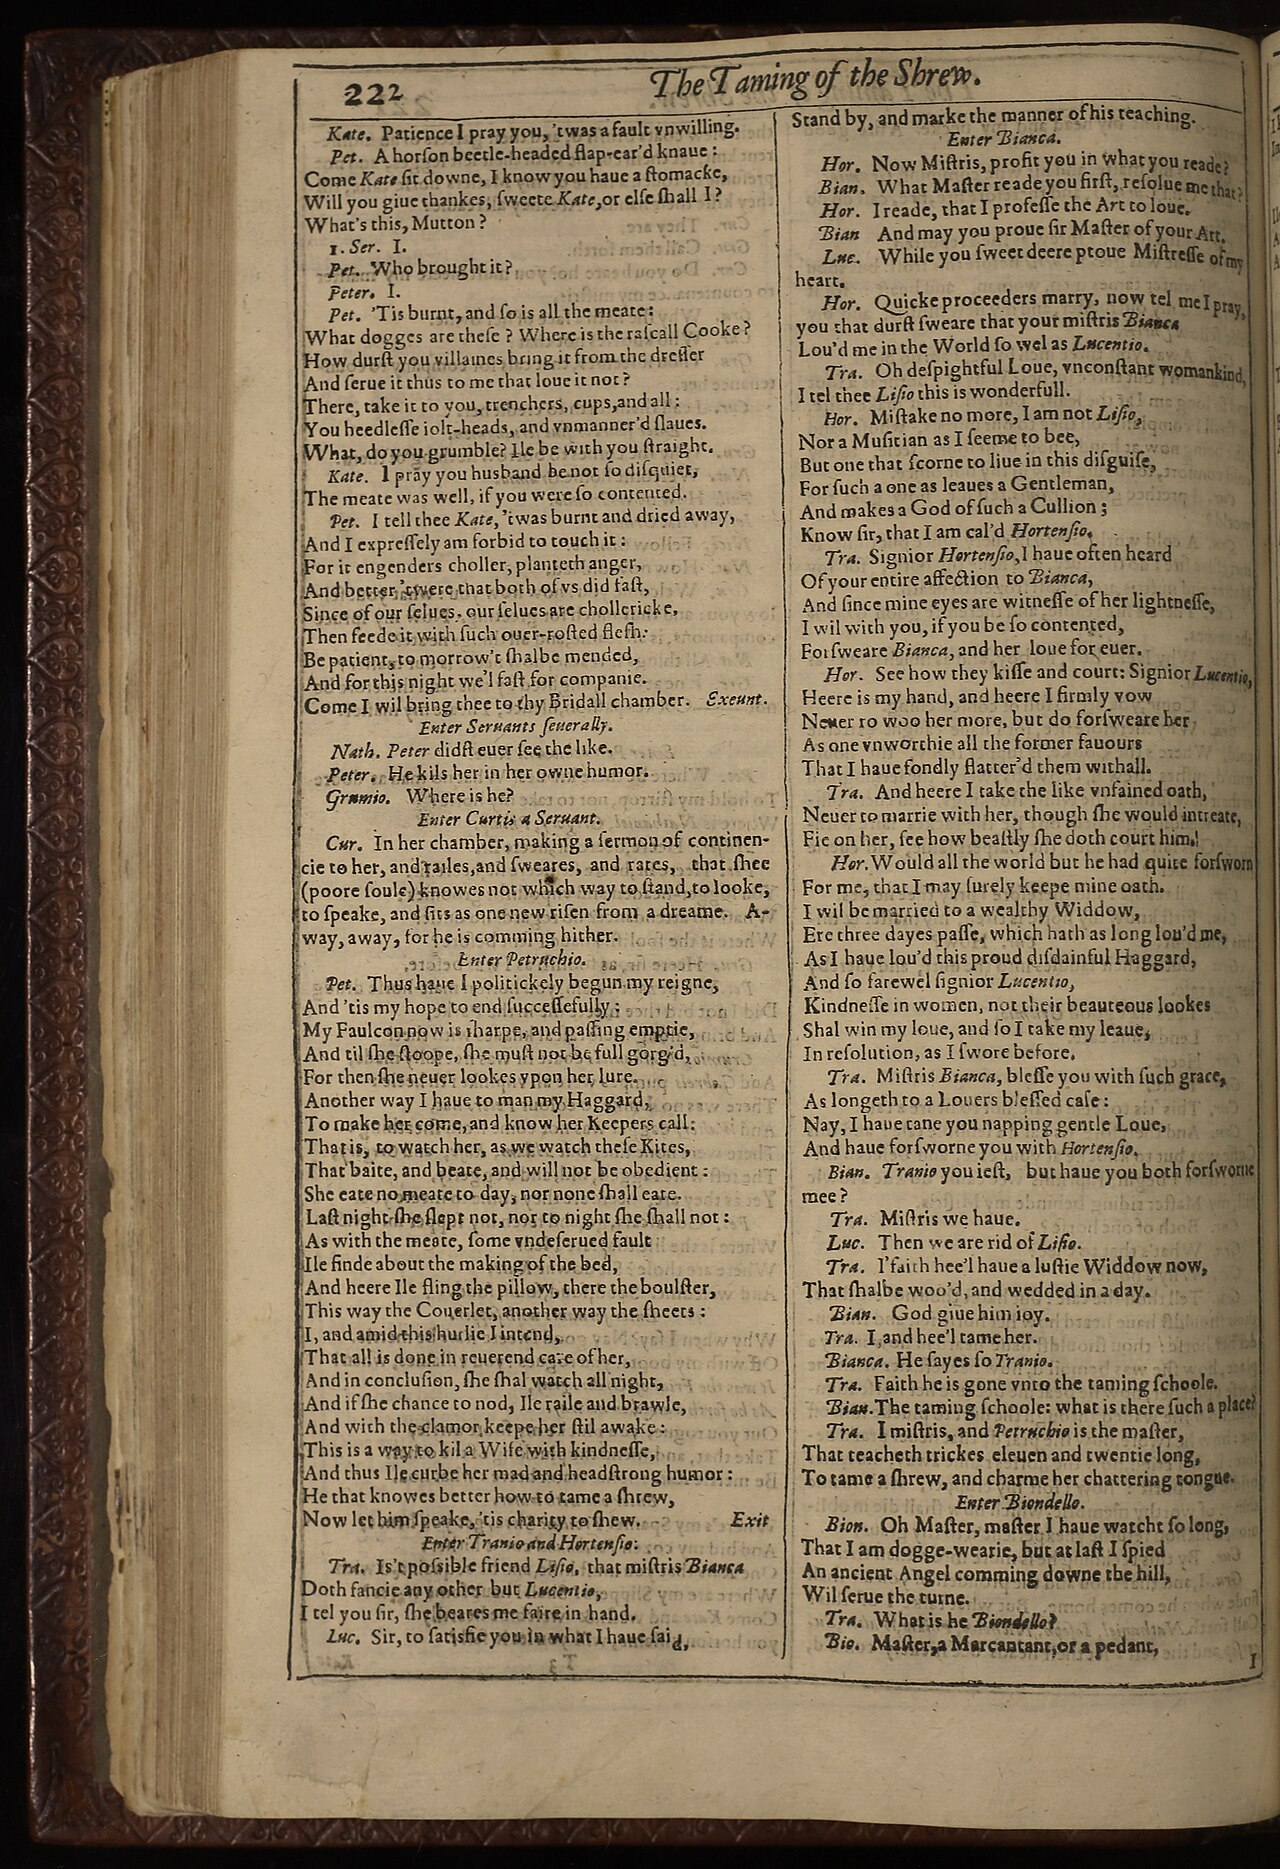 222
The Taming of the Shrew.
Kate. Patience I pray you, 'twas a fault vnwilling.
Pet. A horſon beetle-headed flap-ear'd knaue:
Come Kate ſit downe, I know you haue a ſtomacke,
Will you giue thankes, ſweete Kate, or elſe ſhall I?
What's this, Mutton?
1. Ser. I.
Pet. Who brought it?
Peter. I.
Pet. 'Tis burnt, and ſo is all the meate:
What dogges are theſe? Where is the raſcall Cooke?
How durſt you villaines bring it from the dreſſer
And ſerue it thus to me that loue it not?
There, take it to you, trenchers, cups, and all:
You heedleſſe iolt-heads, and vnmanner'd ſlaues.
What, do you grumble? Ile be with you ſtraight.
Kate. I pray you husband be not ſo diſquiet,
The meate was well, if you were ſo contented.
Pet. I tell thee Kate, 'twas burnt and dried away,
And I expreſſely am forbid to touch it:
For it engenders choller, planteth anger,
And better 'twere that both of vs did faſt,
Since of our ſelues, our ſelues are chollericke,
Then feede it with ſuch ouer-roſted fleſh:
Be patient, to morrow't ſhalbe mended,
And for this night we'l faſt for companie.
Come I wil bring thee to thy Bridall chamber. Exeunt.
Enter Seruants ſeuerally.
Nath. Peter didſt euer ſee the like.
Peter. He kils her in her owne humor.
Grumio. Where is he?
Enter Curtis a Seruant.
Cur. In her chamber, making a ſermon of continen-
cie to her, and railes, and ſweares, and rates, that ſhee
(poore ſoule) knowes not which way to ſtand, to looke,
to ſpeake, and ſits as one new riſen from a dreame. A-
way, away, for he is comming hither.
Enter Petruchio.
Pet. Thus haue I politickely begun my reigne,
And 'tis my hope to end ſucceſſefully:
My Faulcon now is ſharpe, and paſſing emptie,
And til ſhe ſtoope, ſhe muſt not be full gorg'd,
For then ſhe neuer lookes vpon her lure.
Another way I haue to man my Haggard,
To make her come, and know her Keepers call:
That is, to watch her, as we watch theſe Kites,
That baite, and beate, and will not be obedient:
She eate no meate to day, nor none ſhall eate.
Laſt night ſhe ſlept not, nor to night ſhe ſhall not:
As with the meate, ſome vndeſerued fault
Ile finde about the making of the bed,
And heere Ile fling the pillow, there the boulſter,
This way the Couerlet, another way the ſheets:
I, and amid this hurlie I intend,
That all is done in reuerend care of her,
And in concluſion, ſhe ſhal watch all night,
And if ſhe chance to nod, Ile raile and brawle,
And with the clamor keepe her ſtil awake:
This is a way to kil a Wife with kindneſſe,
And thus Ile curbe her mad and headſtrong humor:
He that knowes better how to tame a ſhrew,
Now let him ſpeake, 'tis charity to ſhew. Exit
Enter Tranio and Hortenſio:
Tra. Is't poſsible friend Liſio, that miſtris Bianca
Doth fancie any other but Lucentio,
I tel you ſir, ſhe beares me faire in hand.
Luc. Sir, to ſatisfie you in what I haue ſaid,
Stand by, and marke the manner of his teaching.
Enter Bianca.
Hor. Now Miſtris, profit you in what you reade?
Bian. What Maſter reade you firſt, reſolue me that?
Hor. I reade, that I profeſſe the Art to loue.
Bian And may you proue ſir Maſter of your Art.
Luc. While you ſweet deere ptoue Miſtreſſe of my
heart.
Hor. Quicke proceeders marry, now tel me I pray,
you that durſt ſweare that your miſtris Bianca
Lou'd me in the World ſo wel as Lucentio.
Tra. Oh deſpightful Loue, vnconſtant womankind,
I tel thee Liſio this is wonderfull.
Hor. Miſtake no more, I am not Liſio,
Nor a Muſitian as I ſeeme to bee,
But one that ſcorne to liue in this diſguiſe,
For ſuch a one as leaues a Gentleman,
And makes a God of ſuch a Cullion;
Know ſir, that I am cal'd Hortenſio.
Tra. Signior Hortenſio, I haue often heard
Of your entire affection to Bianca,
And ſince mine eyes are witneſſe of her lightneſſe,
I wil with you, if you be ſo contented,
Forſweare Bianca, and her loue for euer.
Hor. See how they kiſſe and court: Signior Lucentio,
Heere is my hand, and heere I firmly vow
Neuer to woo her more, but do forſweare her
As one vnworthie all the former fauours
That I haue fondly flatter'd them withall.
Tra. And heere I take the like vnfained oath,
Neuer to marrie with her, though ſhe would intreate,
Fie on her, ſee how beaſtly ſhe doth court him.
Hor. Would all the world but he had quite forſworn
For me, that I may ſurely keepe mine oath.
I wil be married to a wealthy Widdow,
Ere three dayes paſſe, which hath as long lou'd me,
As I haue lou'd this proud diſdainful Haggard,
And ſo farewel ſignior Lucentio,
Kindneſſe in women, not their beauteous lookes
Shal win my loue, and ſo I take my leaue,
In reſolution, as I ſwore before.
Tra. Miſtris Bianca, bleſſe you with ſuch grace,
As longeth to a Louers bleſſed caſe:
Nay, I haue tane you napping gentle Loue,
And haue forſworne you with Hortenſio.
Bian. Tranio you ieſt, but haue you both forſworne
mee?
Tra. Miſtris we haue.
Luc. Then we are rid of Liſio.
Tra. I'faith hee'l haue a luſtie Widdow now,
That ſhalbe woo'd, and wedded in a day.
Bian. God giue him ioy.
Tra. I, and hee'l tame her.
Bianca. He ſayes ſo Tranio.
Tra. Faith he is gone vnto the taming ſchoole.
Bian. The taming ſchoole: what is there ſuch a place?
Tra. I miſtris, and Petruchio is the maſter,
That teacheth trickes eleuen and twentie long,
To tame a ſhrew, and charme her chattering tongue.
Enter Biondello.
Bion. Oh Maſter, maſter I haue watcht ſo long,
That I am dogge-wearie, but at laſt I ſpied
An ancient Angel comming downe the hill,
Wil ſerue the turne.
Tra. What is he Biondello?
Bio. Maſter, a Marcantant, or a pedant,
I